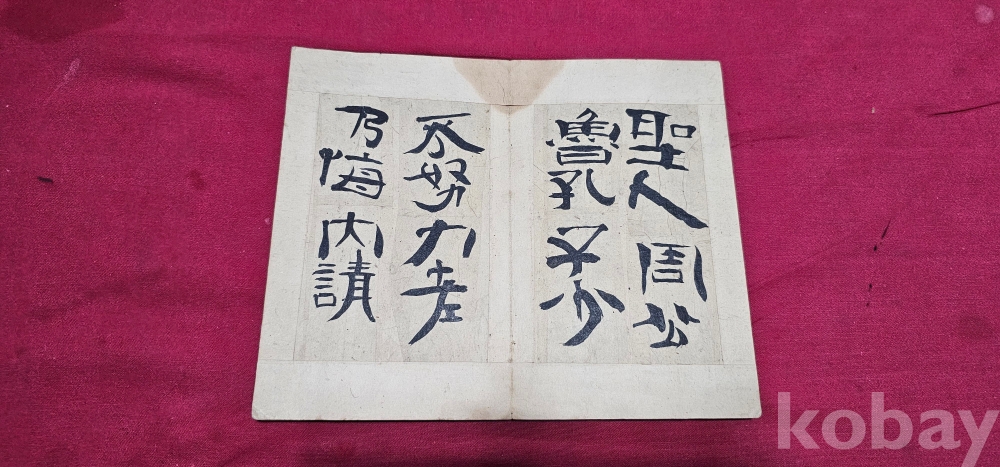 聖人周公
魯孔子少
不努力老
乃悔內請
kobay